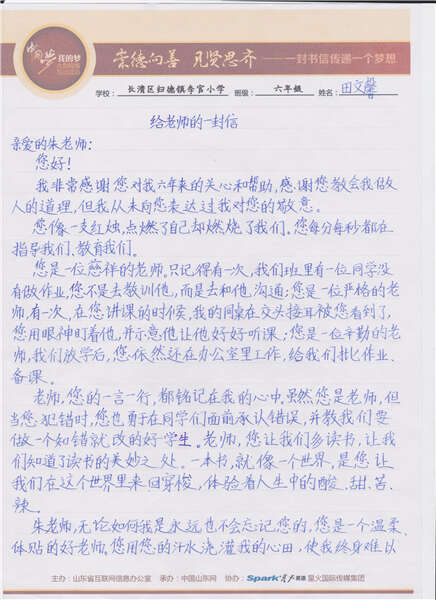 中国梦 我的梦
崇德向善 见贤思齐——一封书信传递一个梦想
学校：长清区归德镇李官小学 班级：六年级 姓名：田文馨
给老师的一封信
亲爱的朱老师：
您好！
我非常感谢您对我六年来的关心和帮助，感谢您教会我做
人的道理，但我从未向您表达过我对您的敬意。
您像一支红烛，点燃了自己却燃烧了我们。您每分每秒都在
指导我们、教育我们。
您是一位慈祥的老师。只记得有一次，我们班里有一位同学没
有做作业，您不是去教训他，而是去和他沟通；您是一位严格的老
师，有一次，在您讲课的时候，我的同桌在交头接耳被您看到了，
您用眼神盯着他，并示意他让他好好听课；您是一位辛勤的老
师，我们放学后，您依然还在办公室里工作，给我们批作业、
备课。
老师，您的一言一行，都铭记在我的心中，虽然您是老师，但
当您犯错时，您也勇于在同学们面前承认错误，并教我们要
做一个知错就改的好学生。老师，您让我们多读书，让我
们知道了读书的美妙之处。一本书，就像一个世界，是您让
我们在这个世界里来回穿梭，体验着人生中的酸、甜、苦、
辣。
朱老师，无论如何我是永远也不会忘记您的，您是一个温柔、
体贴的好老师。您用您的汗水浇灌我的心田，使我终身难以
主办：山东省互联网信息办公室 承办：中国山东网 协办：Spark星火英语 星火国际传媒集团